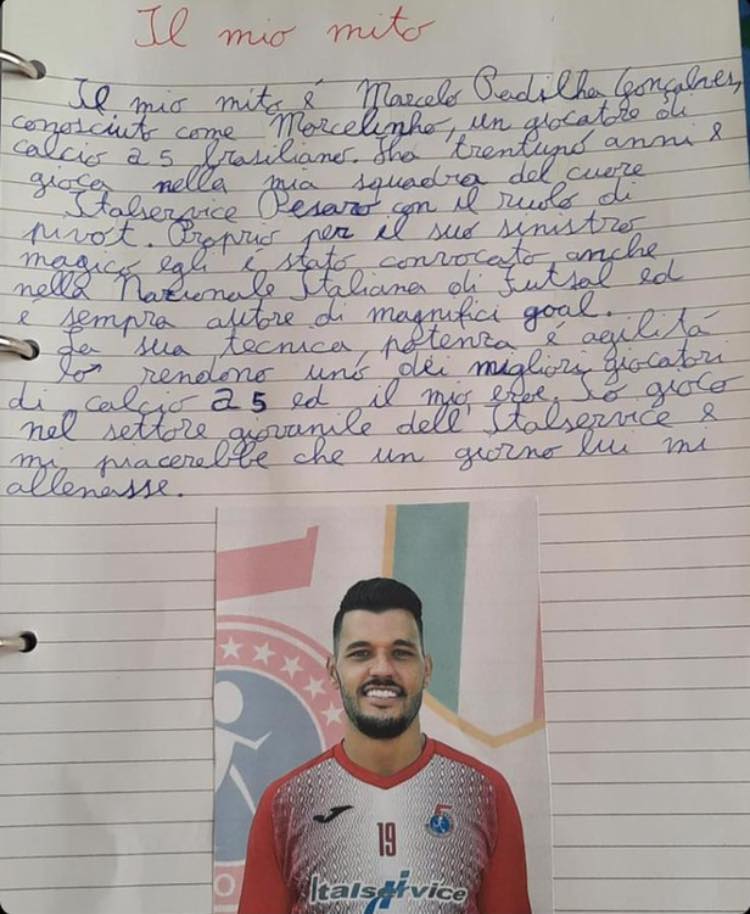 Il mio mito
Il mio mito é Marcelo Padilha Gonçalves,
conosciuto come Marcelinho, un giocatore di
calcio a 5 brasiliano. Ha trentuno anni e
gioca nella mia squadra del cuore
Italservice Pesaro con il ruolo di
pivot. Proprio per il suo sinistro
magico egli é stato convocato anche
nella Nazionale Italiana di Futsal ed
é sempre autore di magnifici goal.
La sua tecnica, potenza é agilitá
lo rendono uno dei migliori giocatori
di calcio a 5 ed il mio eroe. Io gioco
nel settore giovanile dell'Italservice e
mi piacerebbe che un giorno lui mi
allenasse.
5
19
Italservice